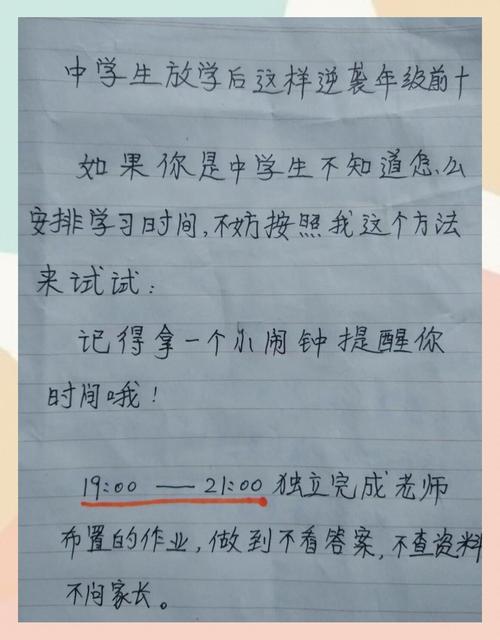 中学生放学后这样逆袭年级前十
如果你是中学生不知道怎么
安排学习时间,不妨按照我这个方法
来试试:
记得拿一个小闹钟提醒你
时间哦!
19:00 — 21:00 独立完成老师
布置的作业,做到不看答案,不查资料
不问家长。